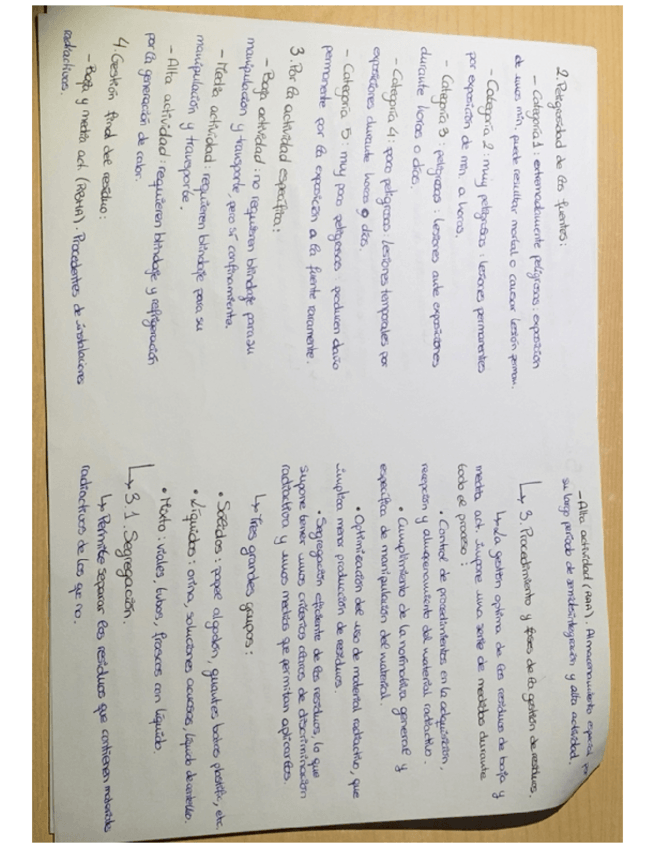 2. Peligrosidad de las fuentes:
- Categoría 1: extremadamente peligrosa: exposición
de unos min. puede resultar mortal o causar lesión perman.
- Categoría 2: muy peligrosa: lesiones permanentes
por exposición de min. a horas.
- Categoría 3: peligrosa: lesiones ante exposiciones
durante horas o días.
- Categoría 4: poco peligrosa: lesiones temporales por
exposiciones durante horas o días.
- Categoría 5: muy poco peligrosas. producen daño
permanente por la exposición a la fuente raramente.
3. Por la actividad específica:
- Baja actividad: no requieren blindaje para su
manipulación y transporte, pero sí confinamiento.
- Media actividad: requieren blindaje para su
manipulación y transporte.
- Alta actividad: requieren blindaje y refrigeración
por la generación de calor.
4. Gestión final del residuo:
- Baja y media act. (RBMA). Procedentes de instalaciones
radiactivas.
- Alta actividad (RAA). Almacenamiento especial por
su largo período de semidesintegración y alta actividad.
↳ 3. Procedimiento y fases de la gestión de residuos.
↳ La gestión óptima de los residuos de baja y
media act. supone una serie de medidas durante
todo el proceso:
• Control de procedimientos en la adquisición,
recepción y almacenamiento del material radiactivo.
• Cumplimiento de la normativa general y
específica de manipulación del material.
• Optimización del uso de material radiactivo, que
implica menor producción de residuos.
• Segregación eficiente de los residuos, lo que
supone tener unos criterios claros de discriminación
radiactiva y unos medios que permitan aplicarlos.
↳ Tres grandes grupos:
• Sólidos: papel, algodón, guantes, bolsas plástico, etc.
• Líquidos: orina, soluciones acuosas, líquido de centelleo.
• Mixto: viales, tubos, frascos con líquido.
↳ 3.1. Segregación.
↳ Permite separar los residuos que contienen materiales
radiactivos de los que no.